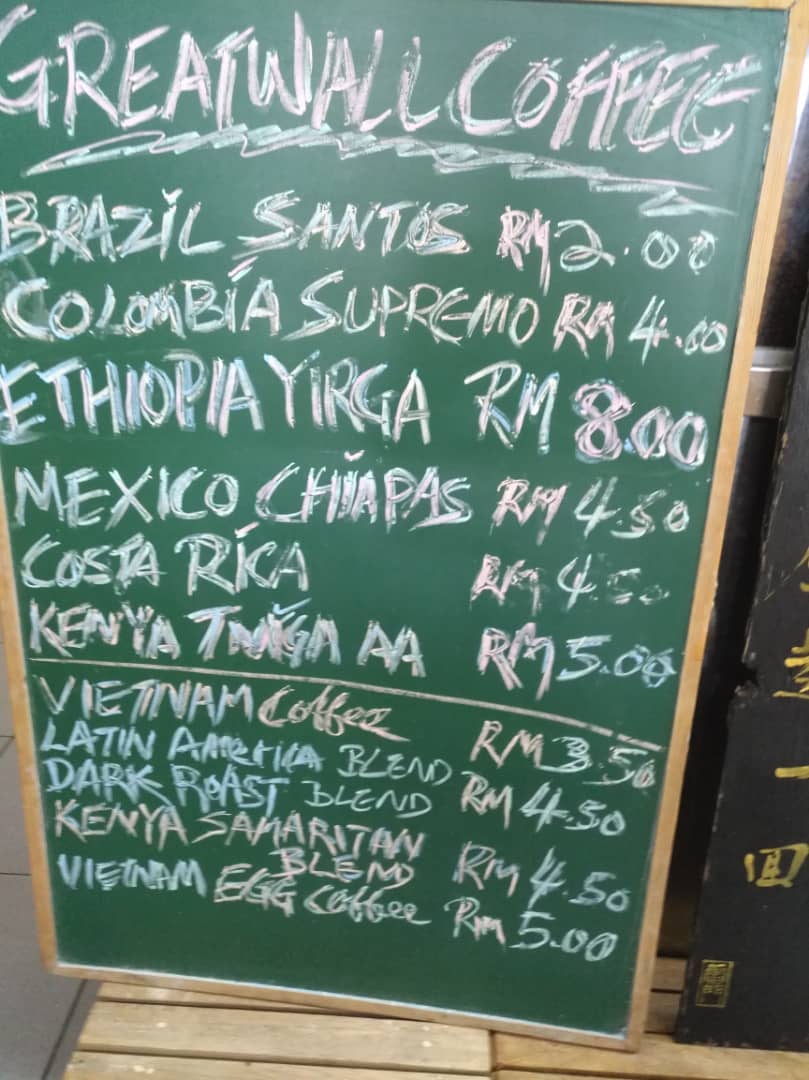 GREATWALL COFFEE
BRAZIL SANTOS RM 2.00
COLOMBIA SUPREMO RM 4.00
ETHIOPIA YIRGA RM 8.00
MEXICO CHIAPAS RM 4.50
COSTA RICA RM 4.50
KENYA AA RM 5.00
VIETNAM Coffee RM 3.50
LATIN AMERICA BLEND
DARK ROAST BLEND RM 4.50
KENYA SAMARITAN
BLEND RM 4.50
VIETNAM EGG Coffee RM 5.00
回